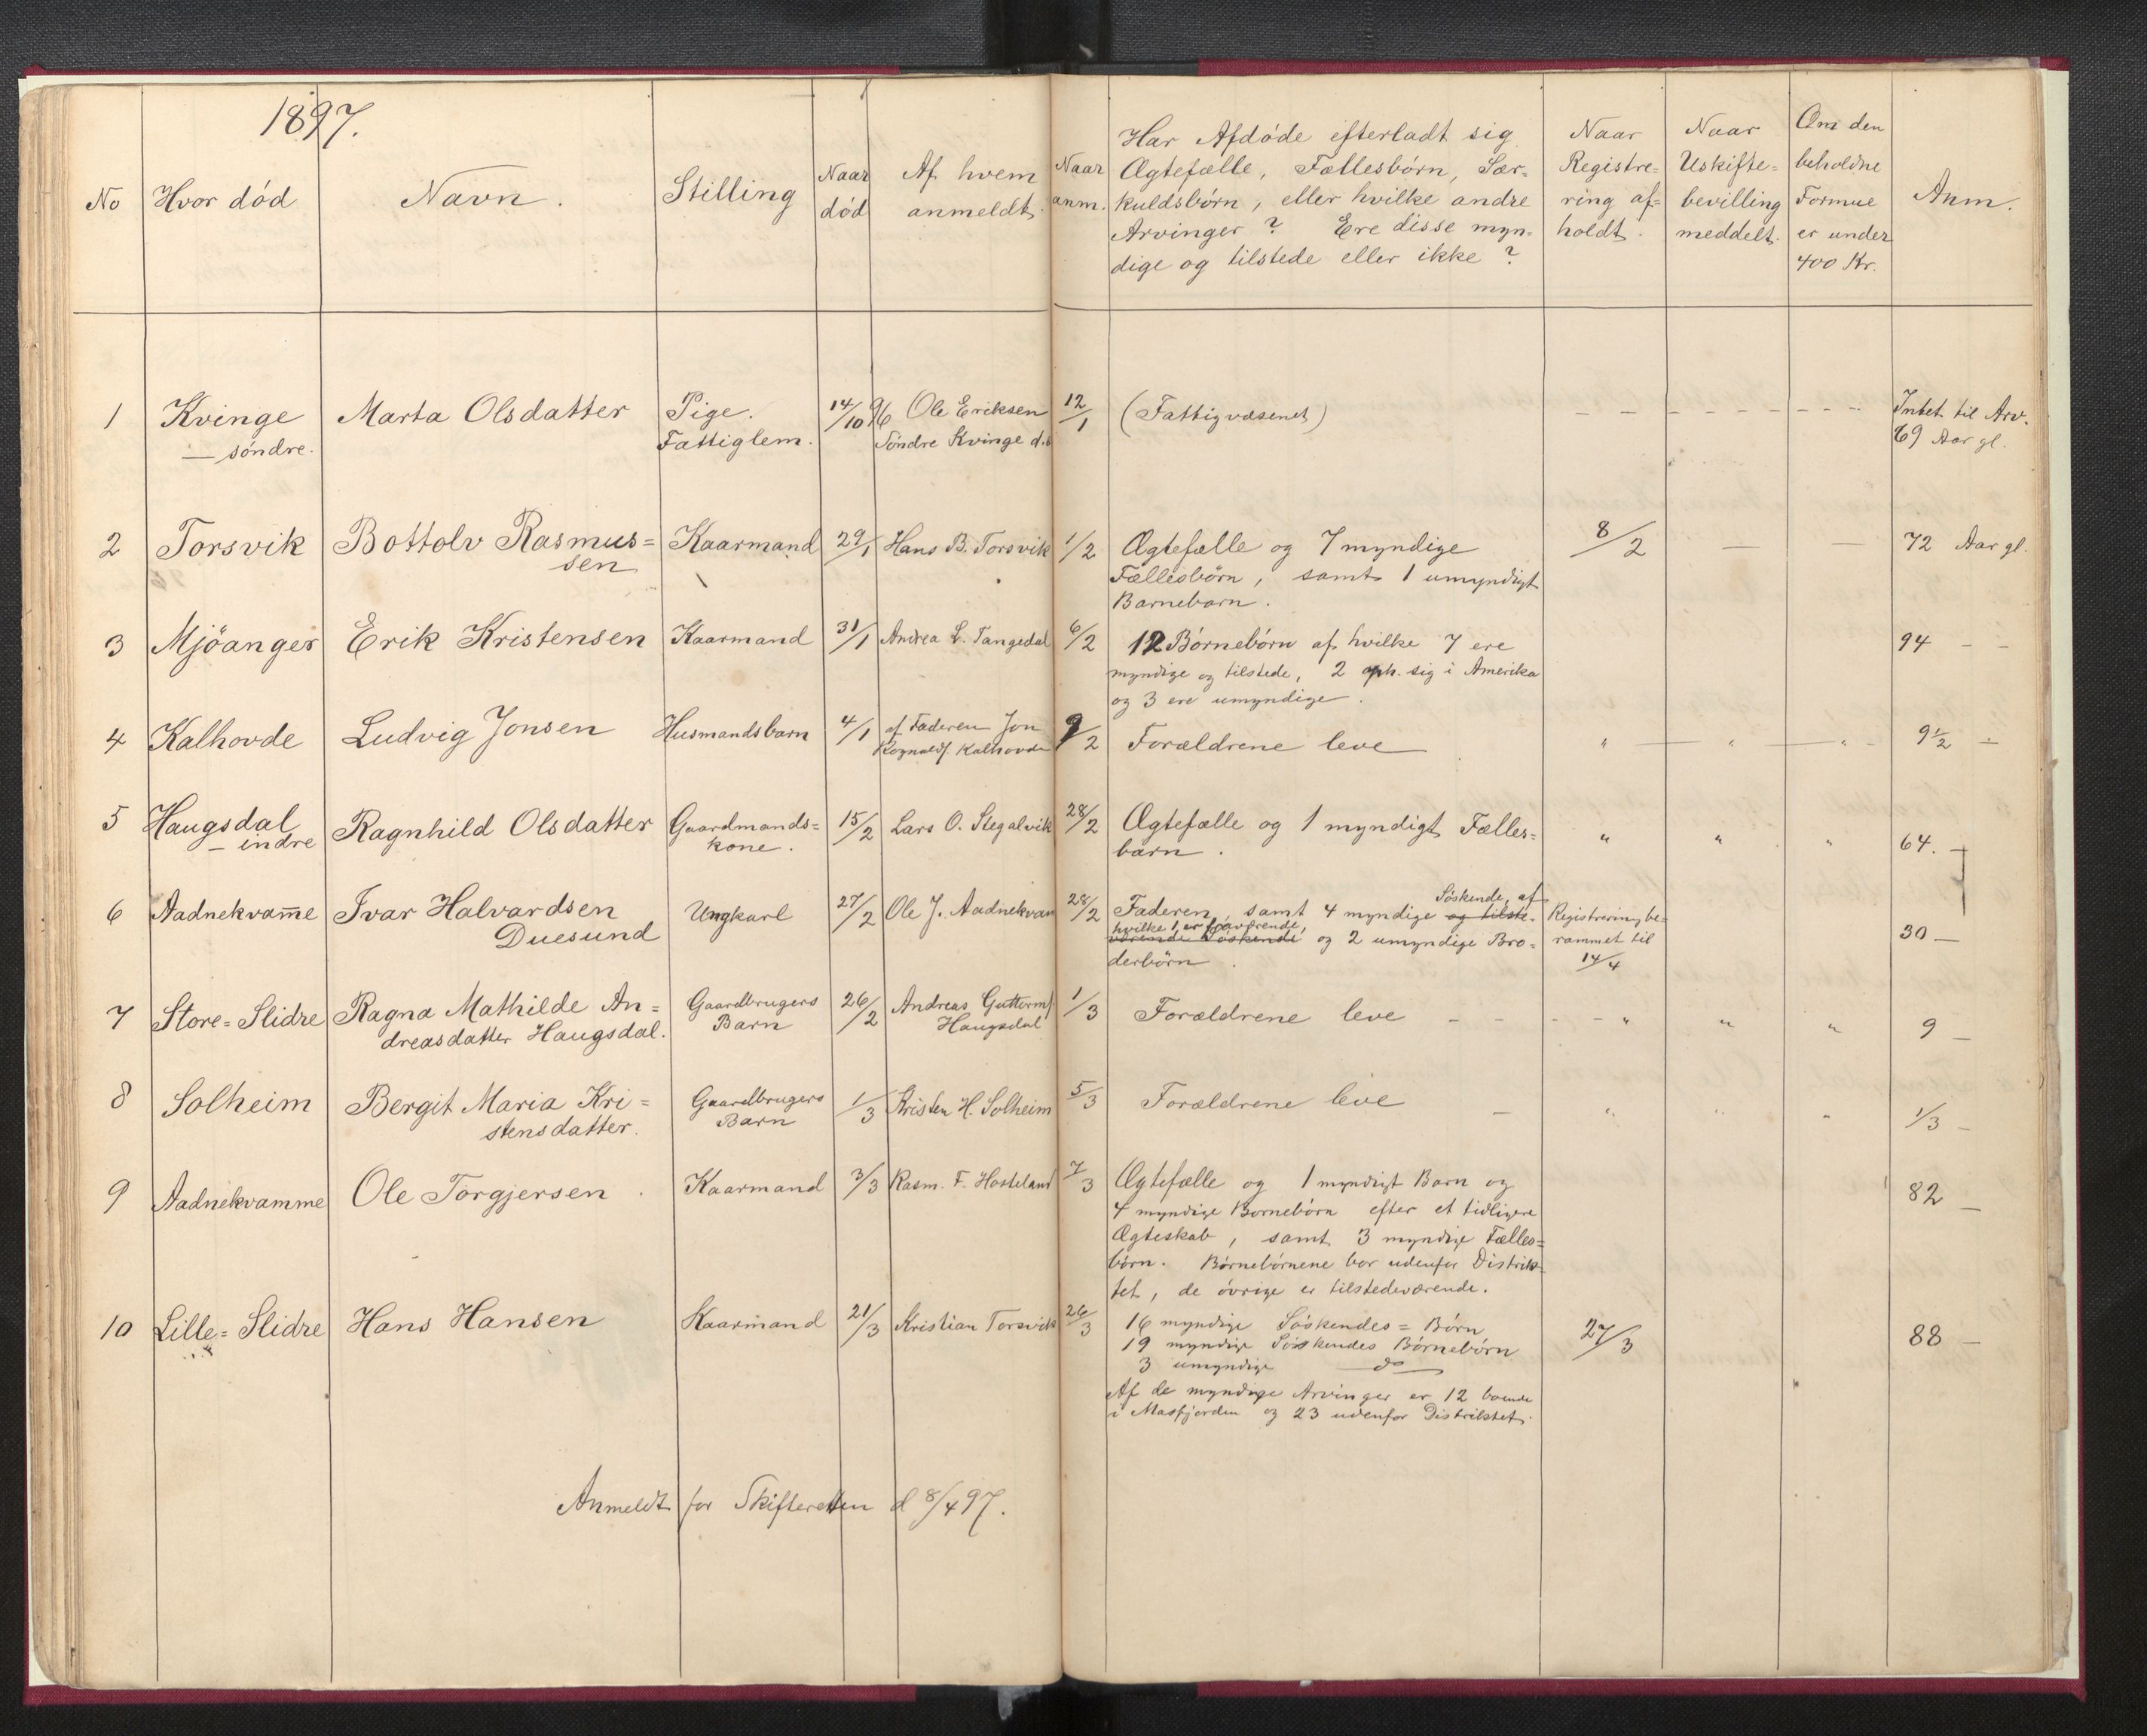 1897.
No
Hvor död
Navn.
Stilling
Naar
död
Af hvem
anmeldt.
Naar
anm.
Har Afdöde efterladt sig
Ægtefælle, Fællesbörn, Sær-
kuldsbörn, eller hvilke andre
Arvinger? Ere disse myn-
dige og tilstede eller ikke?
Naar
Registre-
ring af-
holdt.
Naar
Uskifte-
bevilling
meddelt.
Om den
beholdne
Formue
er under
400 Kr.
Anm.
1 Kvinge
— söndre.
Marta Olsdatter
Pige.
Fattiglem.
14/10 96
Ole Eriksen
Söndre Kvinge d.
12/1
(Fattigvæsenet)
Intet til Arv.
69 Aar gl.
2 Torsvik
Bottolv Rasmus=
sen
Kaarmand
29/1
Hans B. Torsvik
1/2
Ægtefælle og 7 myndige
Fællesbörn, samt 1 umyndigt
Barnebarn.
8/2
— —
72 Aar gl.
3 Mjöanger
Erik Kristensen
Kaarmand
31/1
Andrea L. Tangedal
6/2
12 Börnebörn af hvilke 7 ere
myndige og tilstede, 2 oph. sig i Amerika
og 3 ere umyndige.
94 - -
4 Kalhovde
Ludvig Jonsen
Husmandsbarn
4/1
af Faderen Jon
Rognalds. Kalhovde
9/2
Forældrene leve
" " "
9½ -
5 Haugsdal
— indre
Ragnhild Olsdatter
Gaardmands=
kone.
15/2
Lars O. Stegalvik
28/2
Ægtefælle og 1 myndigt Fælles=
barn.
" " "
64. -
6 Aadnekvam̅e
Ivar Halvardsen
Duesund
Ungkarl
27/2
Ole J. Aadnekvam
28/2
Söskende, af
Faderen, samt 4 myndige og tilste-
hvilke 1 er fraværende,
værende Söskende og 2 umyndige Bro=
derbörn.
Registrering be=
rammet til
14/4
30 —
7 Store=Slidre
Ragna Mathilde An=
dreasdatter Haugsdal.
Gaardbrugers
Barn
26/2
Andreas Gutterms.
Haugsdal
1/3
Forældrene leve - -
" " "
9 —
8 Solheim
Bergit Maria Kri=
stensdatter.
Gaardbrugers
Barn
1/3
Kristen H. Solheim
5/3
Forældrene leve -
" " "
1/3 -
9 Aadnekvamme
Ole Torgjersen
Kaarmand
3/3
Rasm. F. Hosteland
7/3
Ægtefælle og 1 myndigt Barn og
4 myndige Bornebörn efter et tidligere
Ægteskab, samt 3 myndige Fælles=
börn. Börnebörnene bor udenfor Distrik-
tet, de övrige er tilstedeværende.
82 —
10 Lille=Slidre
Hans Hansen
Kaarmand
21/3
Kristian Torsvik
26/3
16 myndige Söskendes=Börn
19 myndige Söskendes Börnebörn
3 umyndige do
Af de myndige Arvinger er 12 boende
i Masfjorden og 23 udenfor Distriktet.
27/3
88 —
Anmeldt for Skifteretten d 8/4 97.